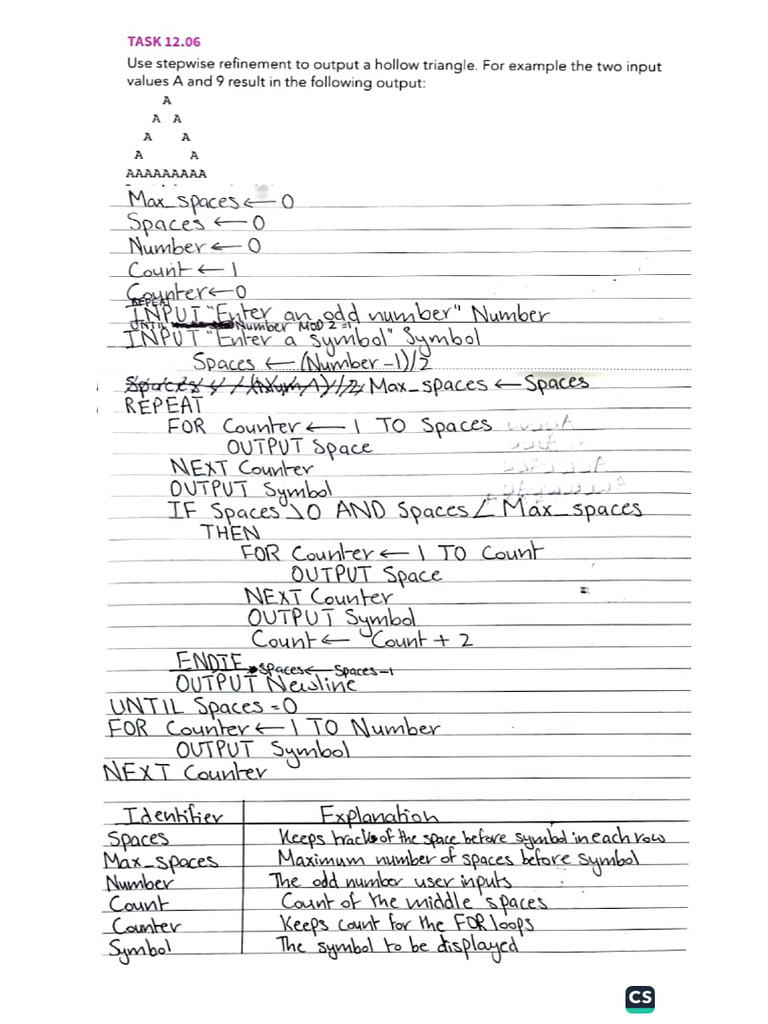 TASK 12.06
Use stepwise refinement to output a hollow triangle. For example the two input
values A and 9 result in the following output:
A
A A
A A
A A
AAAAAAAAA
Max_spaces ← 0
Spaces ← 0
Number ← 0
Count ← 1
Counter ← 0
REPEAT
INPUT "Enter an odd number" Number
UNTIL Number MOD 2 = 1
INPUT "Enter a symbol" Symbol
Spaces ← (Number - 1)/2
Max_spaces ← Spaces
REPEAT
FOR Counter ← 1 TO Spaces
OUTPUT Space
NEXT Counter
OUTPUT Symbol
IF Spaces \0 AND Spaces < Max_spaces
THEN
FOR Counter ← 1 TO Count
OUTPUT Space
NEXT Counter
OUTPUT Symbol
Count ← Count + 2
ENDIF
Spaces ← Spaces - 1
OUTPUT Newline
UNTIL Spaces = 0
FOR Counter ← 1 TO Number
OUTPUT Symbol
NEXT Counter
Identifier Explanation
Spaces Keeps track of the space before symbol in each row
Max_spaces Maximum number of spaces before symbol
Number The odd number user inputs
Count Count of the middle spaces
Counter Keeps count for the FOR loops
Symbol The symbol to be displayed
CS